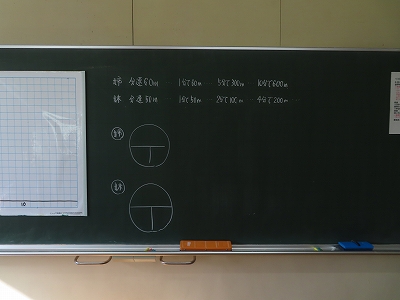 姉 分速60m 1分で60m 5分で300m 10分で600m
妹 分速50m 1分で50m 2分で100m 4分で200m
姉
妹
10